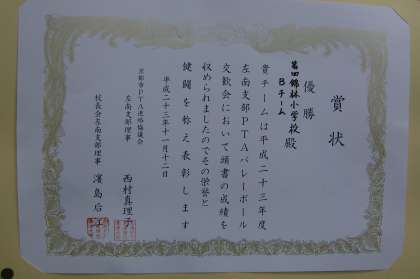 賞状
優勝
第四錦林小学校
Bチーム 殿
貴チームは平成二十三年度
左南支部PTAバレーボール
交歓会において頭書の成績を
収められましたのでその栄誉と
健闘を称え表彰します
平成二十三年十一月十二日
京都市PTA連絡協議会
左南支部理事 西村真理子
校長会左南支部理事 濱島后